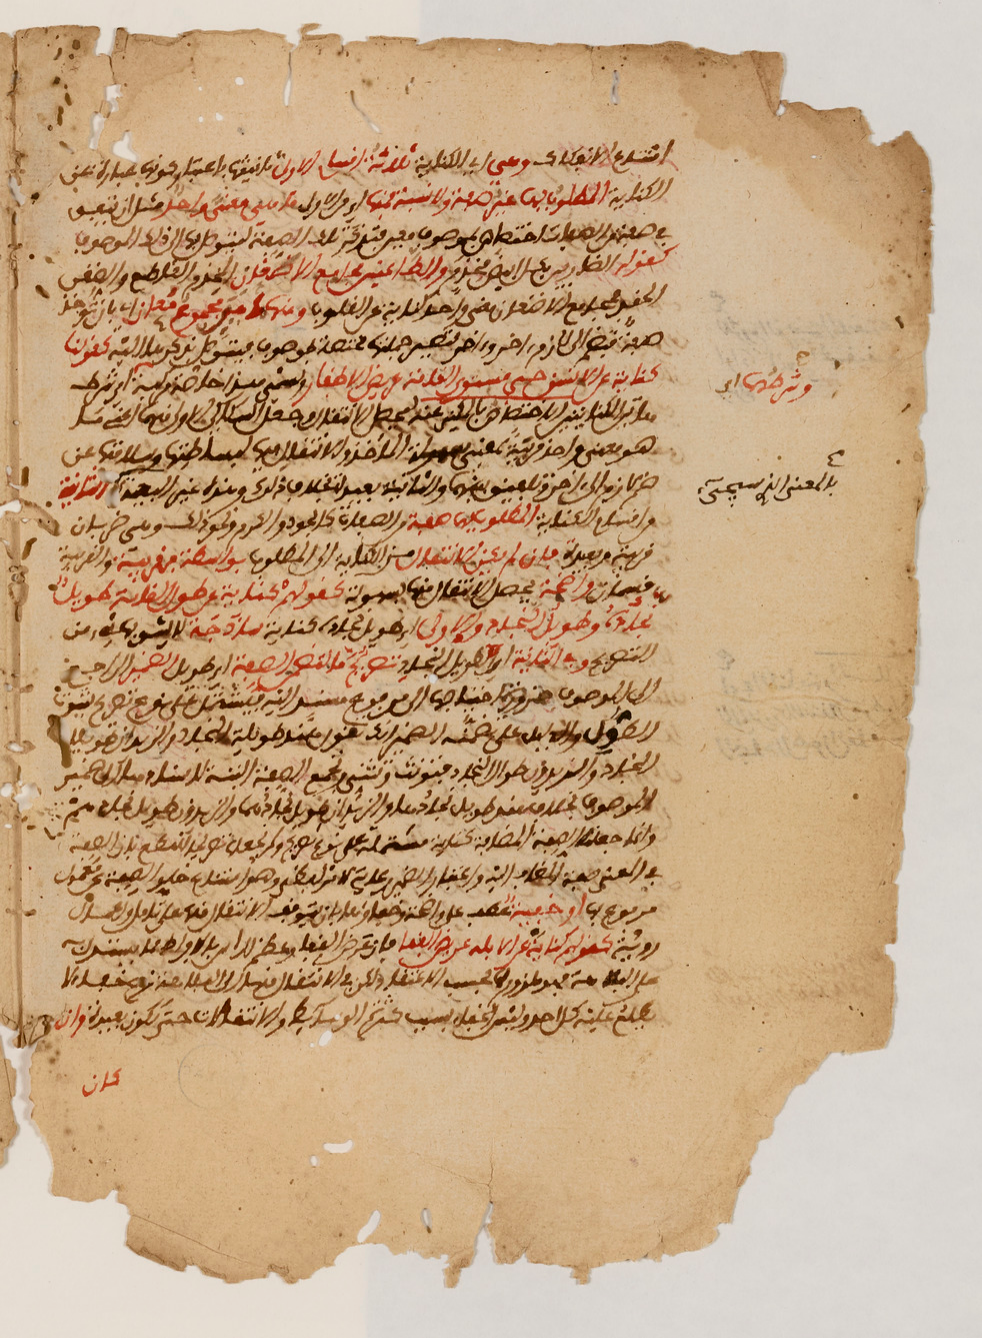 امتناع الانفكاك وهي اي الكناية ثلاثة اقسام الاولى تانيثها باعتبار كونها عبارة عن
الكناية المطلوب بها غير صفة ولا نسبة فمنها اي من الاولى ما هي معنى واحد مثل ان يتفق
في صفة من الصفات اختصاص بموصوف معين فتذكر تلك الصفة ليتوصل بها الى ذلك الموصوف
كقوله الضاربين بكل ابيض مخذم والطاعنين مجامع الاضغان المخذم القاطع والضغن
الحقد ومجامع الاضغان معنى واحد كناية عن القلوب ومنها ما هو مجموع معان بان تؤخذ
صفة فتضم الى لازم اخر واخر لتصير جملتها مختصة بموصوف فيتوصل بذكرها اليه كقولنا
كناية عن الانسان حي مستوي القامة عريض الاظفار وتسمى هذا خاصة مركبة
وشرطهما اي
هاتين الكنايتين الاختصاص بالمكني عنه ليحصل الانتقال وجعل السكاكي الاولى منها اعني ما
هو معنى واحد قريبة بمعنى سهولة الماخذ والانتقال فيها لبساطتها
بالمعنى الذي سيجيء
ضم لازم الى اخر وتلفيق بينهما والثانية بعيدة بخلاف ذلك وهذه غير البعيدة الثانية
من اقسام الكناية المطلوب بها صفة من الصفات كالجود والكرم ونحو ذلك وهي ضربان
قريبة وبعيدة فان لم يكن الانتقال من الكناية الى المطلوب بواسطة فقريبة والقريبة
قسمان واضحة يحصل الانتقال منها بسهولة كقولهم كناية عن طول القامة طويل
نجاده وطويل النجاد والاولى اي طويل نجاده كناية ساذجة لا يشوبها شيء من
التصريح وفي الثانية اي طويل النجاد تصريح ما لتضمن الصفة اي طويل الضمير الراجع
الى الموصوف ضرورة احتياجها الى مرفوع مسند اليه فيشتمل على نوع تصريح بثبوت
الطول والدليل على تضمنه الضمير انك تقول هند طويلة النجاد والزيدان طويلا
النجاد والزيدون طوال النجاد فتؤنث وتثني وتجمع الصفة البتة لاسنادها الى ضمير
الموصوف بخلاف هند طويل نجادها والزيدان طويل نجادهما والزيدون طويل نجادهم
وانما جعلنا الصفة المضافة كناية مشتملة على نوع تصريح ولم نجعلها تصريحا للقطع بان الصفة
في المعنى صفة المضاف اليه واعتبار الضمير رعاية لامر لفظي وهو امتناع خلو الصفة عن معمول
مرفوع بها او خفية عطف على واضحة وخفاؤها بان يتوقف الانتقال منها على تامل واعمال
روية كقولهم كناية عن الابله عريض القفا فان عرض القفا وعظم الراس بالافراط مما يستدل به
على البلاهة فهو ملزوم لها بحسب الاعتقاد لكن في الانتقال منه الى البلاهة نوع خفاء لا
يطلع عليه كل احد وليس الخفاء بسبب كثرة الوسائط والانتقالات حتى تكون بعيدة وان
كان